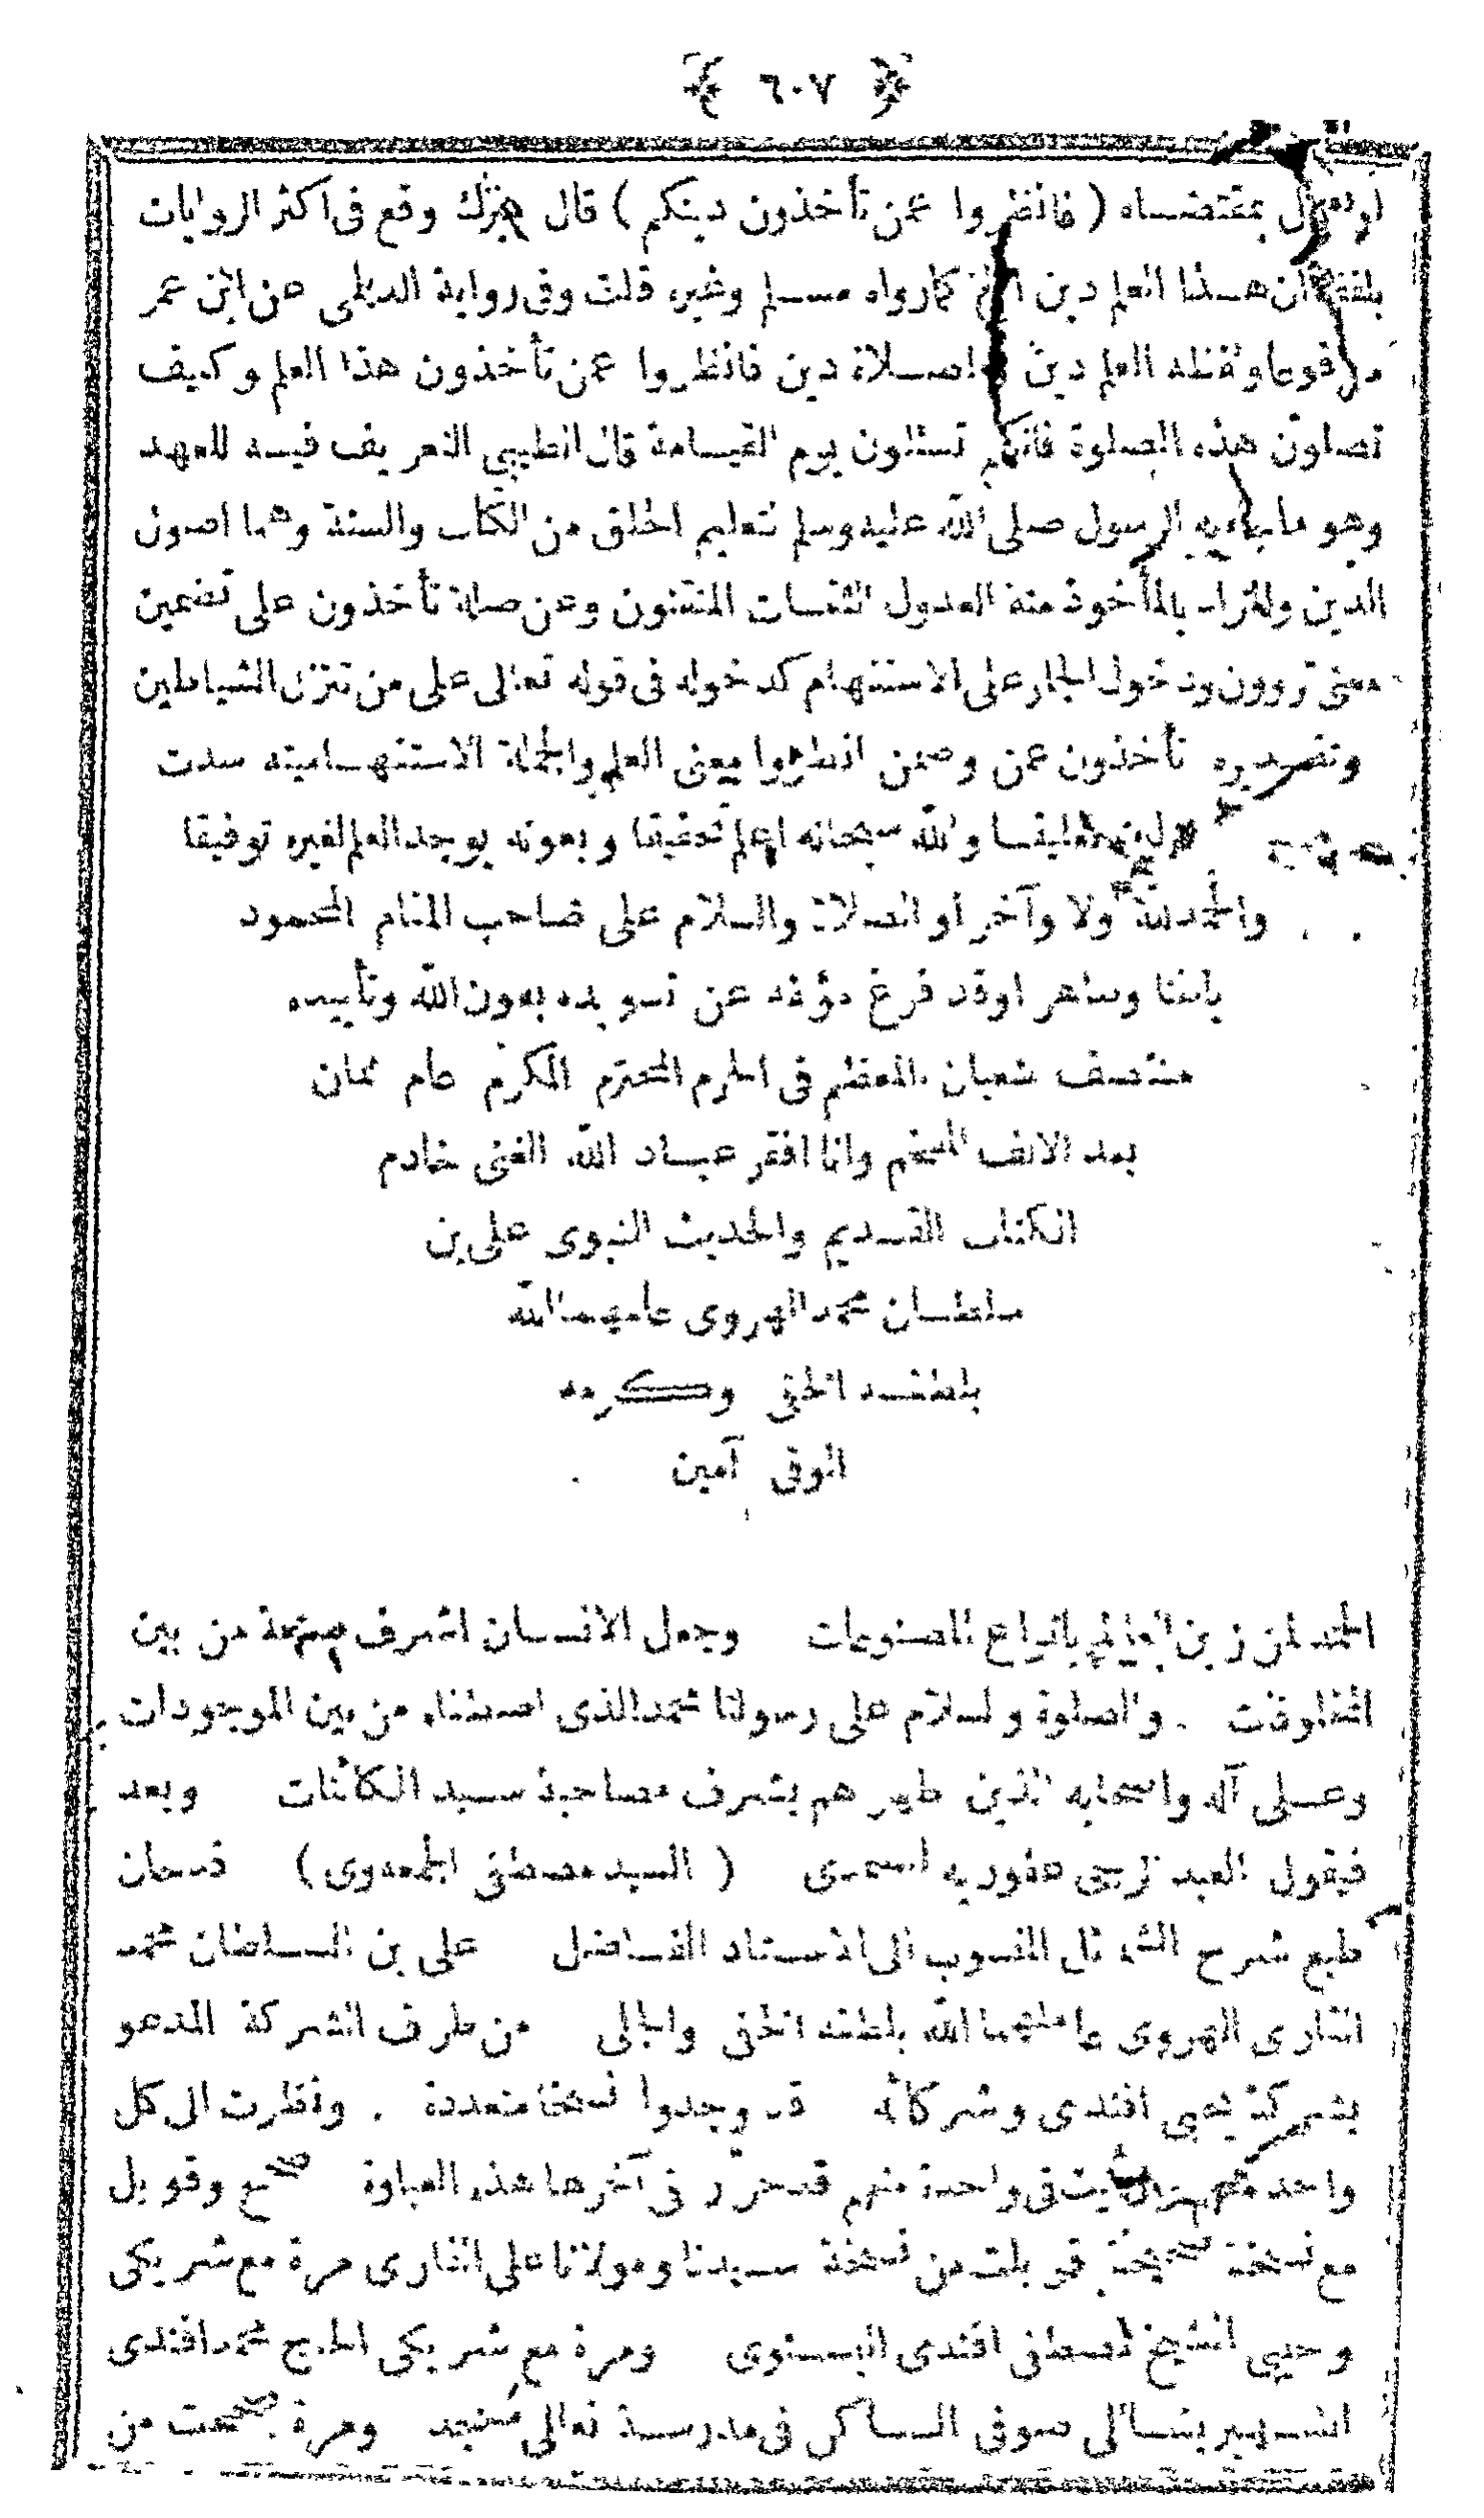 ﴿ ٦٠٧ ﴾
بمقتضاه ( فانظروا عمن تأخذون دينكم ) قال ميرك وقع فى اكثر الروايات
بلفظ ان هذا العلم دين الخ كما رواه مسلم وغيره قلت وفى رواية الديلمى عن ابن عمر
مرفوعا ولفظه العلم دين والصلاة دين فانظروا عمن تأخذون هذا العلم وكيف
تصلون هذه الصلوة فانكم تسئلون يوم القيامة قال الطيبى التعريف فيه للعهد
وهو ما جاء به الرسول صلى الله عليه وسلم لتعليم الخلق من الكتاب والسنة وهما اصول
الدين والمراد بالمأخوذ منه العدول الثقات المتقنون وعن صلة تأخذون على تضمين
معنى تروون ودخول الجار على الاستفهام كدخوله فى قوله تعالى على من تنزل الشياطين
وتقديره تأخذون عمن وضمن انظروا معنى العلم والجملة الاستفهامية سدت
تعليقا والله سبحانه اعلم تحقيقا وبعونه يوجد العلم لغيره توفيقا
والحمد لله اولا وآخرا والصلاة والسلام على صاحب المقام المحمود
باطنا وظاهرا وقد فرغ مؤلفه عن تسويده بعون الله وتأييده
منتصف شعبان المعظم فى الحرم المحترم المكرم عام ثمان
بعد الالف المفخم وانا افقر عباد الله الغنى خادم
الكتاب القديم والحديث النبوى على بن
سلطان محمد الهروى عاملهما الله
بلطفه الخفى وكرمه
الوفى آمين
الحمد لمن زين العالم بانواع المصنوعات وجعل الانسان اشرف من بين
المخلوقات . والصلوة والسلام على رسولنا محمد الذى اصطفاه من بين الموجودات
وعلى آله واصحابه الذين طهرهم بشرف مصاحبة سيد الكائنات وبعد
فيقول العبد الراجى عفو ربه الصمدى ( السيد مصطفى الجمعدوى ) قد حان
طبع شرح الشمائل المنسوب الى الاستاد الفاضل على بن السلطان محمد
القارى الهروى عاملهما الله بلطفه الخفى والجلى من طرف الشركة المدعو
بشركة يحيى افندى وشركائه قد وجدوا نسخا متعددة . ونظرت الى كل
واحد منهم رأيت فى واحدة منهم قد حرر فى آخرها هذه العبارة صحح وقوبل
مع نسخة صحيحة قوبلت من نسخة سيدنا ومولانا على القارى مرة مع شريكى
وحبيبى الشيخ مصطفى افندى البسنوى ومرة مع شريكى الحاج محمد افندى
الشهير بشالى صوفى الساكن فى مدرسة ومرة صححت من